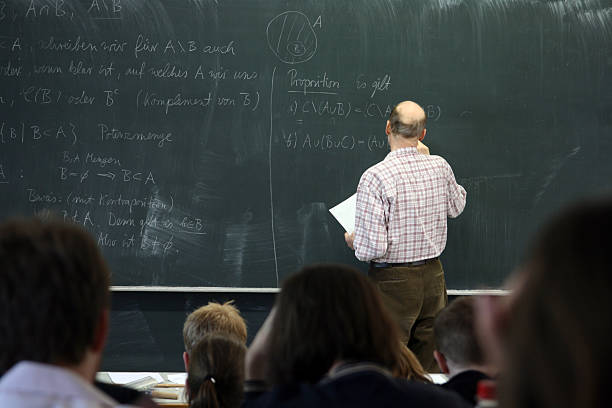 B, A∩B, A\B
⊂ A, schreiben wir für A\B auch
oder, wenn klar ist, auf welches A wir uns
C(B) oder Bᶜ (Komplement von B)
{B | B⊂A} Potenzmenge
B, A Mengen
B=∅ ⇒ B⊂A
Beweis: (mit Kontraposition)
B⊄A. Dann gibt es b∈B
Also ist ≠∅.
A
B
Proposition Es gilt
a) C\(A∪B) = (C\A
B)
b) A∪(B∪C) = (A∪